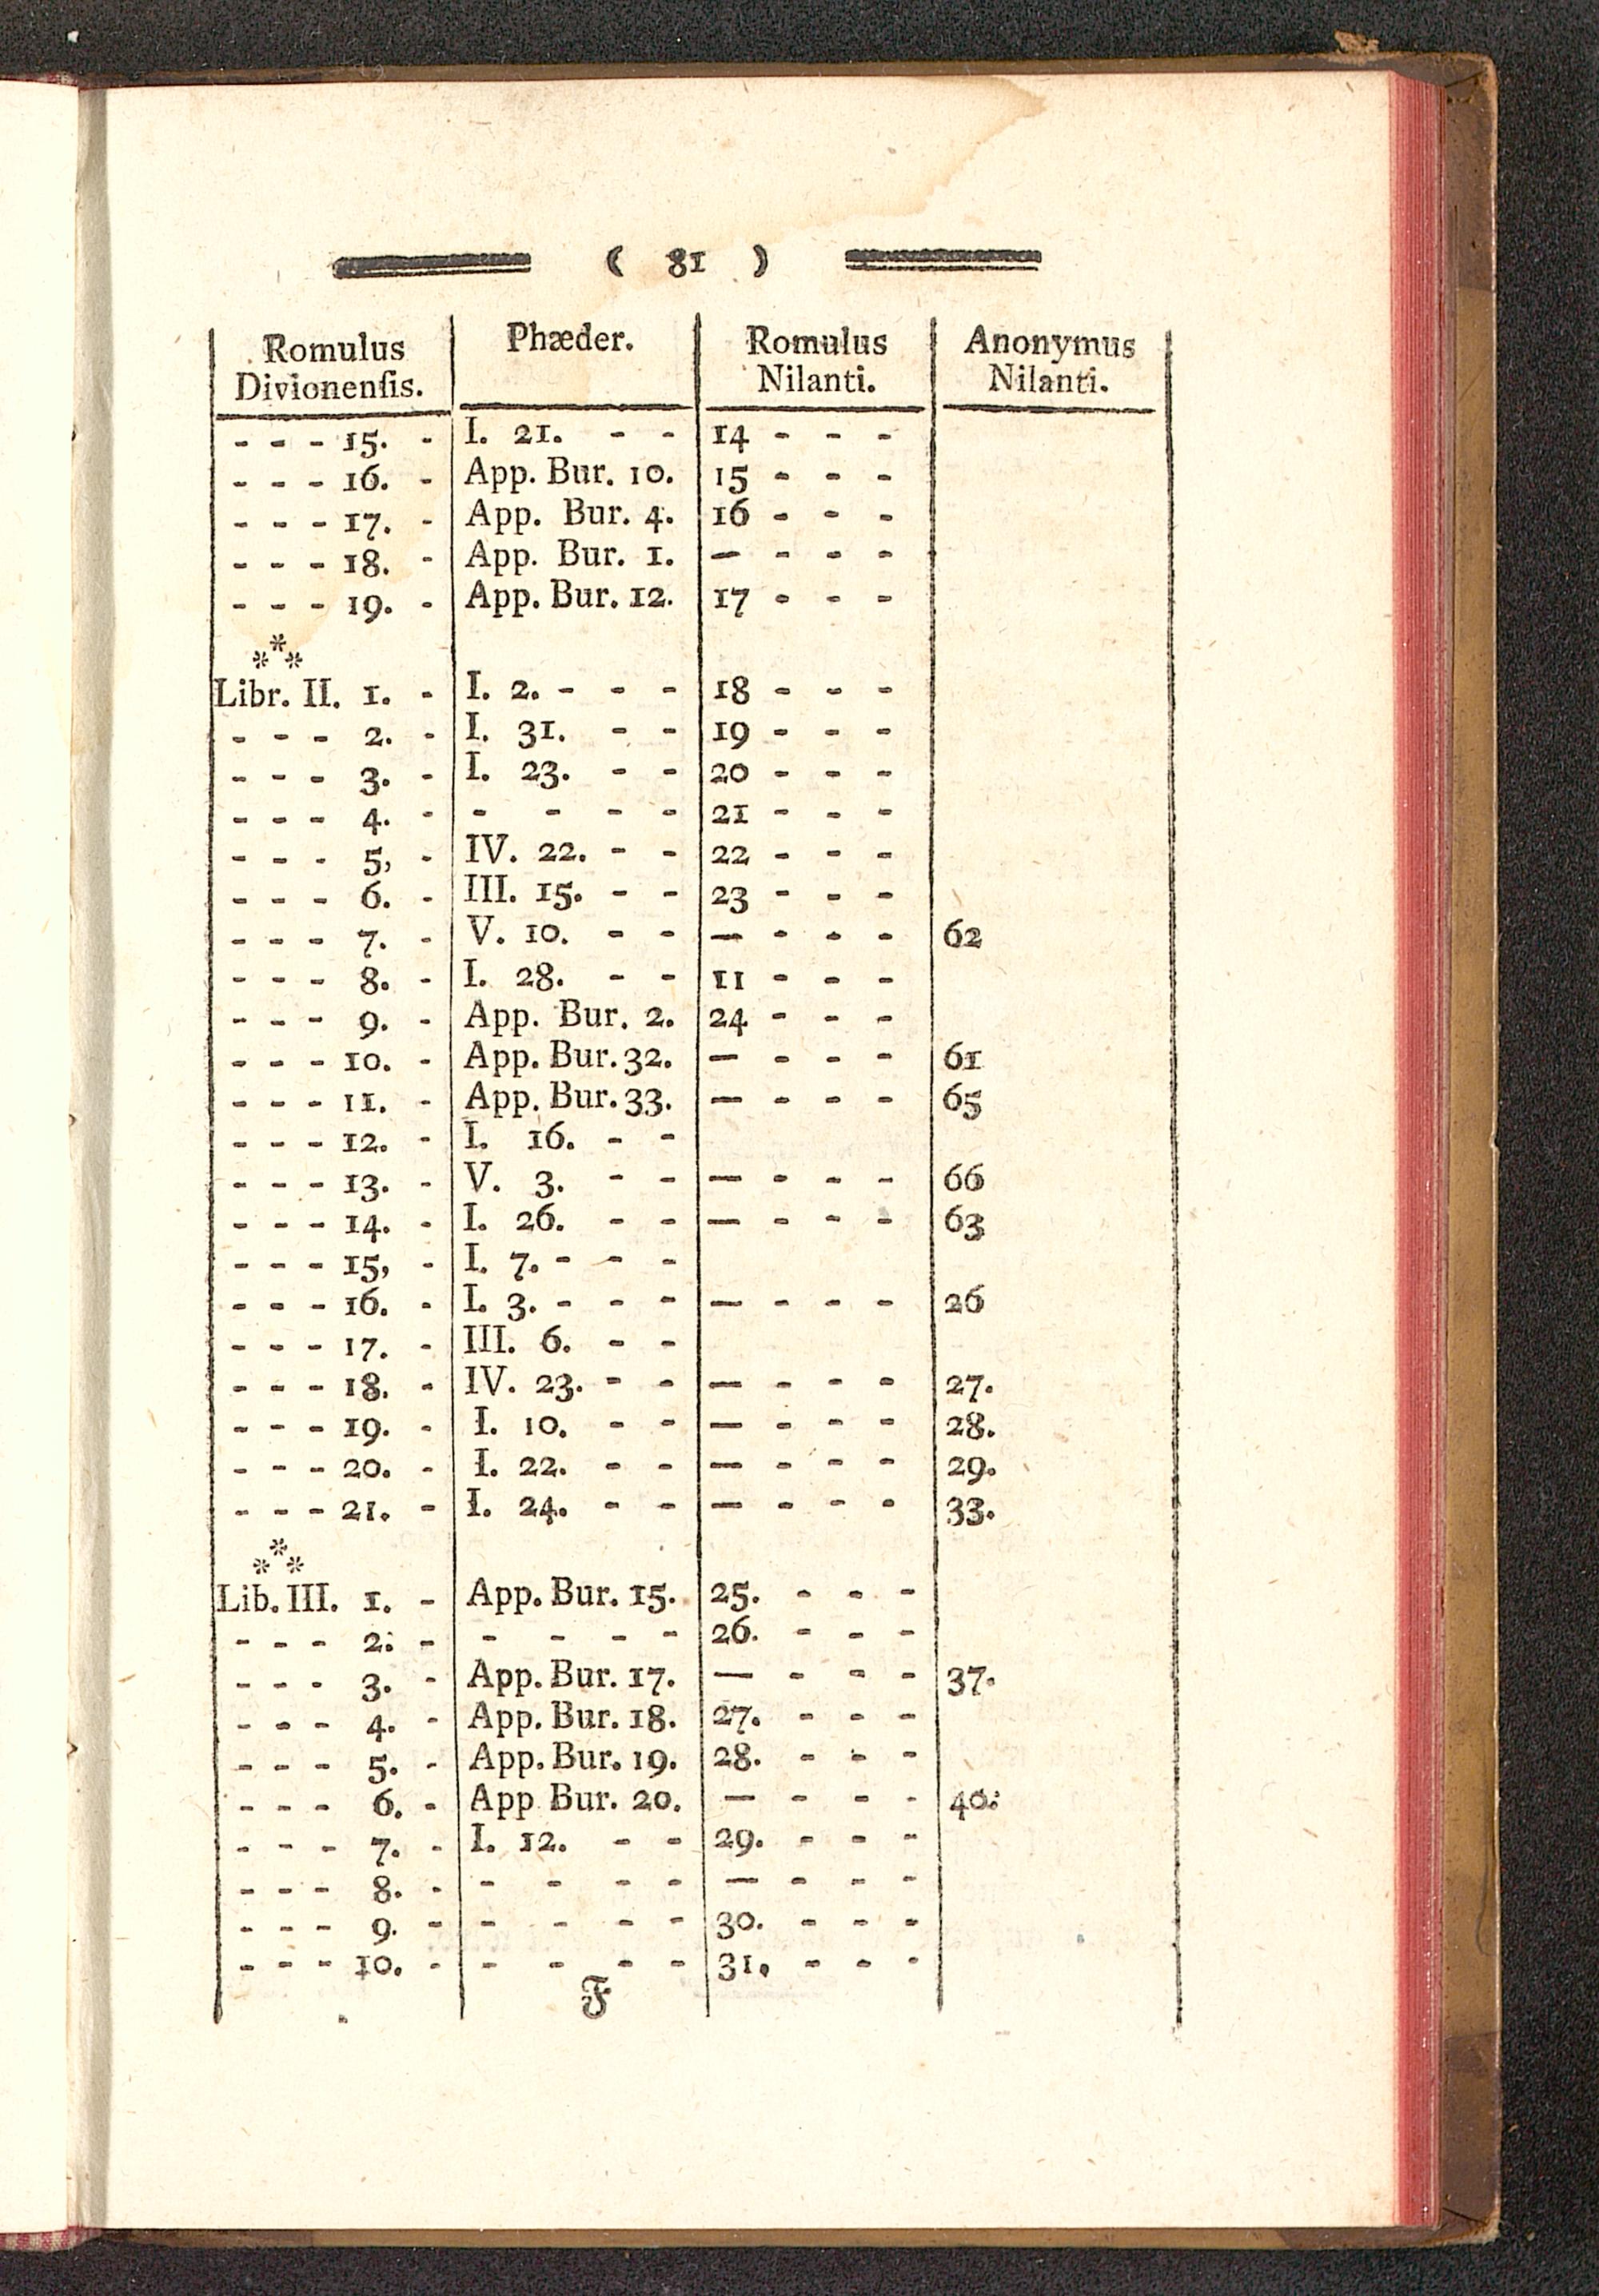 ( 81 )
Romulus Divionenſis. | Phæder. | Romulus Nilanti. | Anonymus Nilanti.
- - - 15. - | I. 21. - - | 14 - - - |
- - - 16. - | App. Bur. 10. | 15 - - - |
- - - 17. - | App. Bur. 4. | 16 - - - |
- - - 18. - | App. Bur. 1. | — - - - |
- - - 19. - | App. Bur. 12. | 17 - - - |
***
Libr. II. 1. - | I. 2. - - - | 18 - - - |
- - - 2. - | I. 31. - - | 19 - - - |
- - - 3. - | I. 23. - - | 20 - - - |
- - - 4. - | - - - - | 21 - - - |
- - - 5, - | IV. 22. - - | 22 - - - |
- - - 6. - | III. 15. - - | 23 - - - |
- - - 7. - | V. 10. - - | — - - - | 62
- - - 8. - | I. 28. - - | 11 - - - |
- - - 9. - | App. Bur. 2. | 24 - - - |
- - - 10. - | App. Bur. 32. | — - - - | 61
- - - 11. - | App. Bur. 33. | — - - - | 65
- - - 12. - | I. 16. - - | |
- - - 13. - | V. 3. - - | — - - - | 66
- - - 14. - | I. 26. - - | — - - - | 63
- - - 15, - | I. 7. - - - | |
- - - 16. - | I. 3. - - - | — - - - | 26
- - - 17. - | III. 6. - - | |
- - - 18. - | IV. 23. - - | — - - - | 27.
- - - 19. - | I. 10. - - | — - - - | 28.
- - - 20. - | I. 22. - - | — - - - | 29.
- - - 21. - | I. 24. - - | — - - - | 33.
***
Lib. III. 1. - | App. Bur. 15. | 25. - - - |
- - - 2: - | - - - - | 26. - - - |
- - - 3. - | App. Bur. 17. | — - - - | 37.
- - - 4. - | App. Bur. 18. | 27. - - - |
- - - 5. - | App. Bur. 19. | 28. - - - |
- - - 6. - | App Bur. 20. | — - - - | 40:
- - - 7. - | I. 12. - - | 29. - - - |
- - - 8. - | - - - - | — - - - |
- - - 9. - | - - - - | 30. - - - |
- - - 10. - | - - - - | 31. - - - |
F